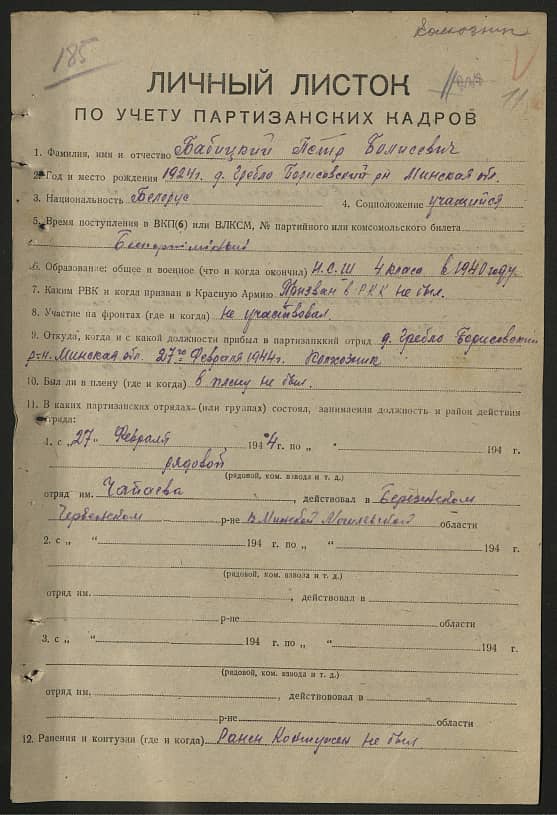 Колхозник
185
11
ЛИЧНЫЙ ЛИСТОК
ПО УЧЕТУ ПАРТИЗАНСКИХ КАДРОВ
1. Фамилия, имя и отчество Бабицкий Пётр Бомисевич
2. Год и место рождения 1924г. д. Гребло Борисовский рн Минская обл.
3. Национальность Белорус 4. Соцположение учащийся
5. Время поступления в ВКП(б) или ВЛКСМ, № партийного или комсомольского билета
Беспартийный
6. Образование: общее и военное (что и когда окончил) Н.С.Ш 4 класа в 1940 году
7. Каким РВК и когда призван в Красную Армию Призван в РКК не был.
8. Участие на фронтах (где и когда) не участвовал.
9. Откуда, когда и с какой должности прибыл в партизанский отряд д. Гребло Борисовский
р-н. Минская обл. 27го Февраля 1944г. Колхозник
10. Был ли в плену (где и когда) в плену не был.
11. В каких партизанских отрядах (или группах) состоял, занимаемая должность и район действия
отряда:
1. с „27“ Февраля 1944г. по „ “ 194 г.
рядовой
(рядовой, ком. взвода и т. д.)
отряд им. Чапаева, действовал в Березенском
Червенском р-не в Минской Могилевской области
2. с „ “ 194 г. по „ “ 194 г.
(рядовой, ком. взвода и т. д.)
отряд им. , действовал в
р-не области
3. с „ “ 194 г. по „ “ 194 г.
(рядовой, ком. взвода и т. д.)
отряд им. , действововал в
р-не области
12. Ранения и контузии (где и когда) Ранен Контужен не был.